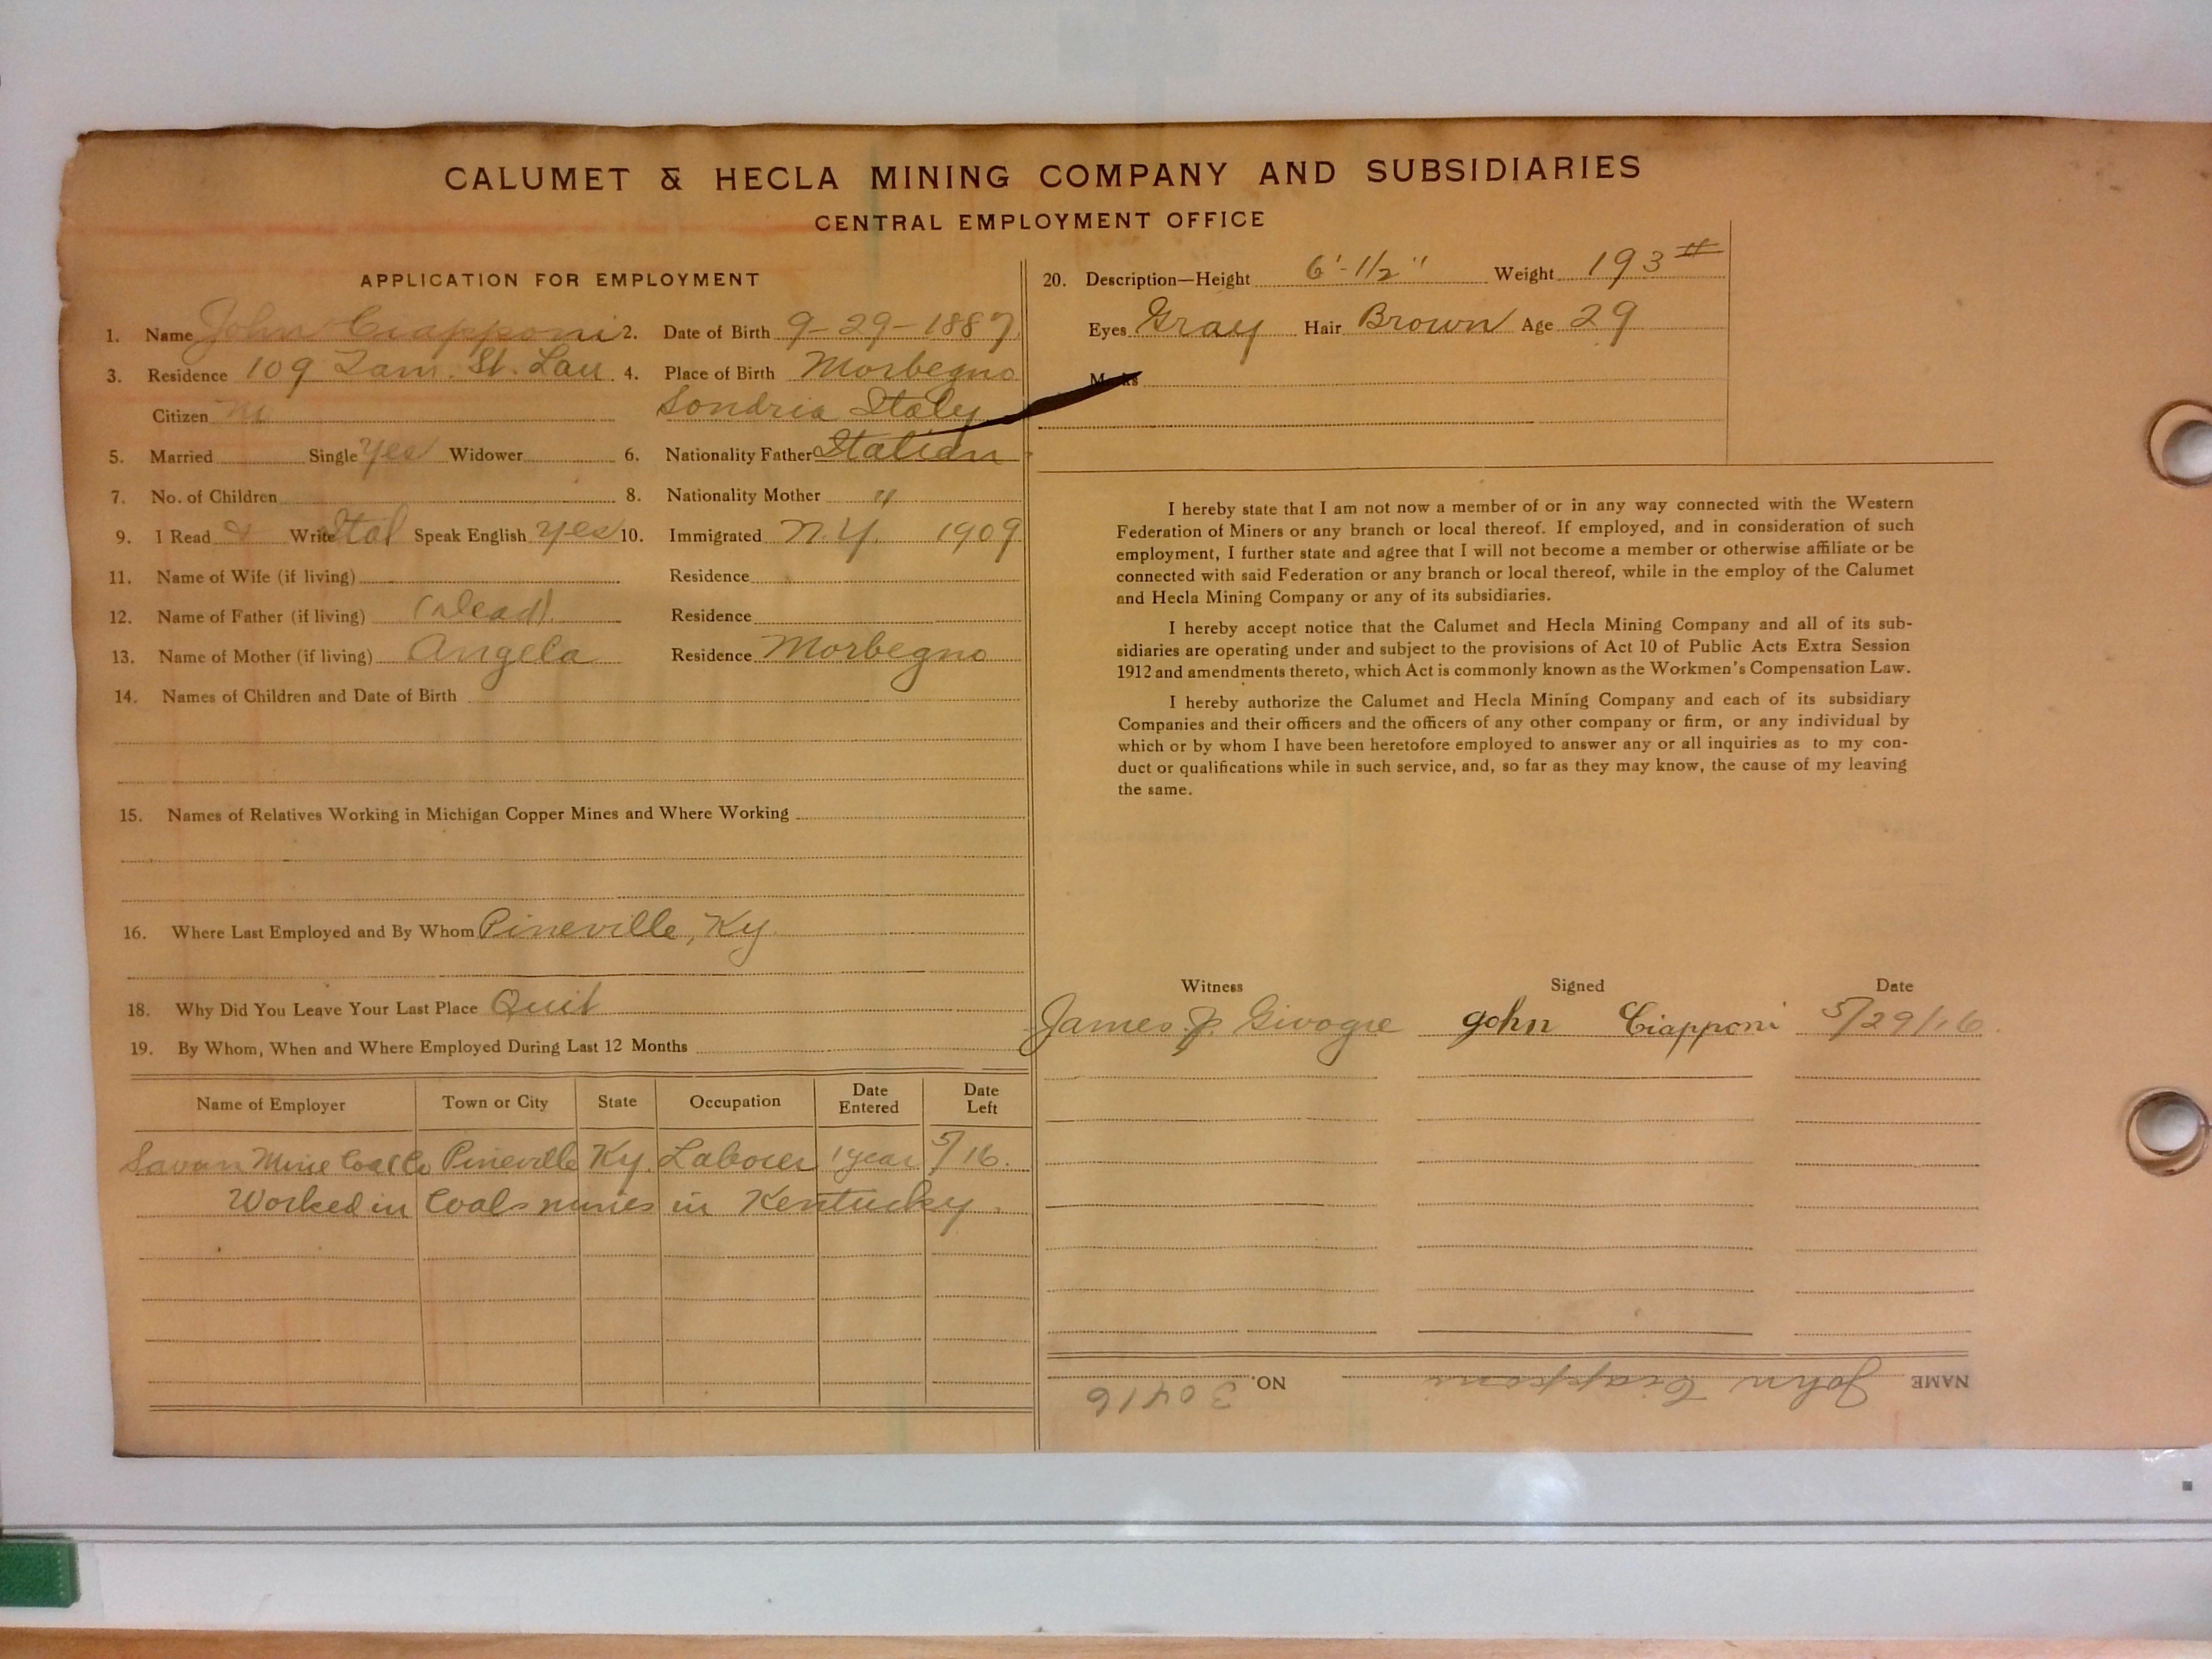 CALUMET & HECLA MINING COMPANY AND SUBSIDIARIES
CENTRAL EMPLOYMENT OFFICE
APPLICATION FOR EMPLOYMENT
1. Name John Ciapponi 2. Date of Birth 9-29-1887
3. Residence 109 Tam. St. Lau 4. Place of Birth Morbegno
Citizen no Sondria Italy
5. Married Single yes Widower 6. Nationality Father Italian
7. No. of Children 8. Nationality Mother "
9. I Read & Write Ital Speak English yes 10. Immigrated N.Y. 1909
11. Name of Wife (if living) Residence
12. Name of Father (if living) (Dead) Residence
13. Name of Mother (if living) Angela Residence Morbegno
14. Names of Children and Date of Birth
15. Names of Relatives Working in Michigan Copper Mines and Where Working
16. Where Last Employed and By Whom Pineville, Ky.
18. Why Did You Leave Your Last Place Quit
19. By Whom, When and Where Employed During Last 12 Months
Name of Employer Town or City State Occupation Date Entered Date Left
Mine Coal Co Pineville Ky. Laborer 1 year 5/16.
Worked in Coals mines in Kentucky.
20. Description—Height 6'-1/2" Weight 193#
Eyes Gray Hair Brown Age 29
Marks
I hereby state that I am not now a member of or in any way connected with the Western
Federation of Miners or any branch or local thereof. If employed, and in consideration of such
employment, I further state and agree that I will not become a member or otherwise affiliate or be
connected with said Federation or any branch or local thereof, while in the employ of the Calumet
and Hecla Mining Company or any of its subsidiaries.
I hereby accept notice that the Calumet and Hecla Mining Company and all of its sub-
sidiaries are operating under and subject to the provisions of Act 10 of Public Acts Extra Session
1912 and amendments thereto, which Act is commonly known as the Workmen's Compensation Law.
I hereby authorize the Calumet and Hecla Mining Company and each of its subsidiary
Companies and their officers and the officers of any other company or firm, or any individual by
which or by whom I have been heretofore employed to answer any or all inquiries as to my con-
duct or qualifications while in such service, and, so far as they may know, the cause of my leaving
the same.
Witness Signed Date
James P. Givogre John Ciapponi 5/29/16
NAME John Ciapponi NO. 30416